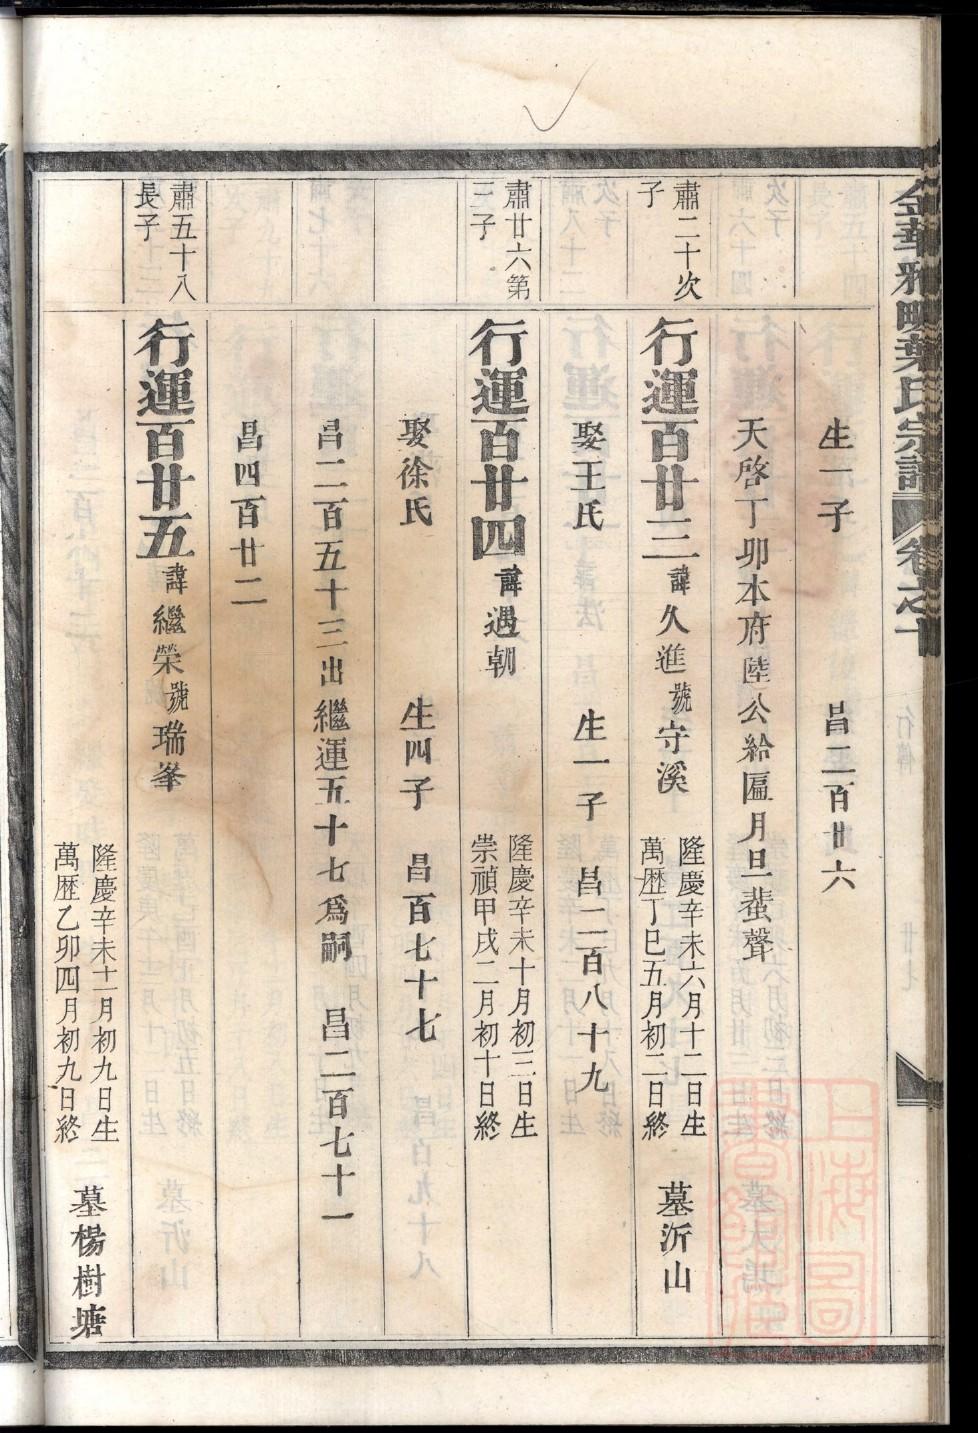 金華雅畈葉氏宗譜 卷之十
生一子 昌三百廿六
天啓丁卯本府陸公給匾月旦蜚聲
肅二十次
子
行運百廿三 諱久進 號守溪 隆慶辛未六月十二日生
萬歷丁巳五月初二日終 墓沂山
娶王氏 生一子 昌二百八十九
肅廿六第
三子
行運百廿四 諱遇朝 隆慶辛未十月初三日生
崇禎甲戌二月初十日終
娶徐氏 生四子 昌百七十七
昌二百五十三出繼運五十七爲嗣 昌二百七十一
昌四百廿二
肅五十八
長子
行運百廿五 諱繼榮 號瑞峯
隆慶辛未十一月初九日生
萬歷乙卯四月初九日終 墓楊樹塘